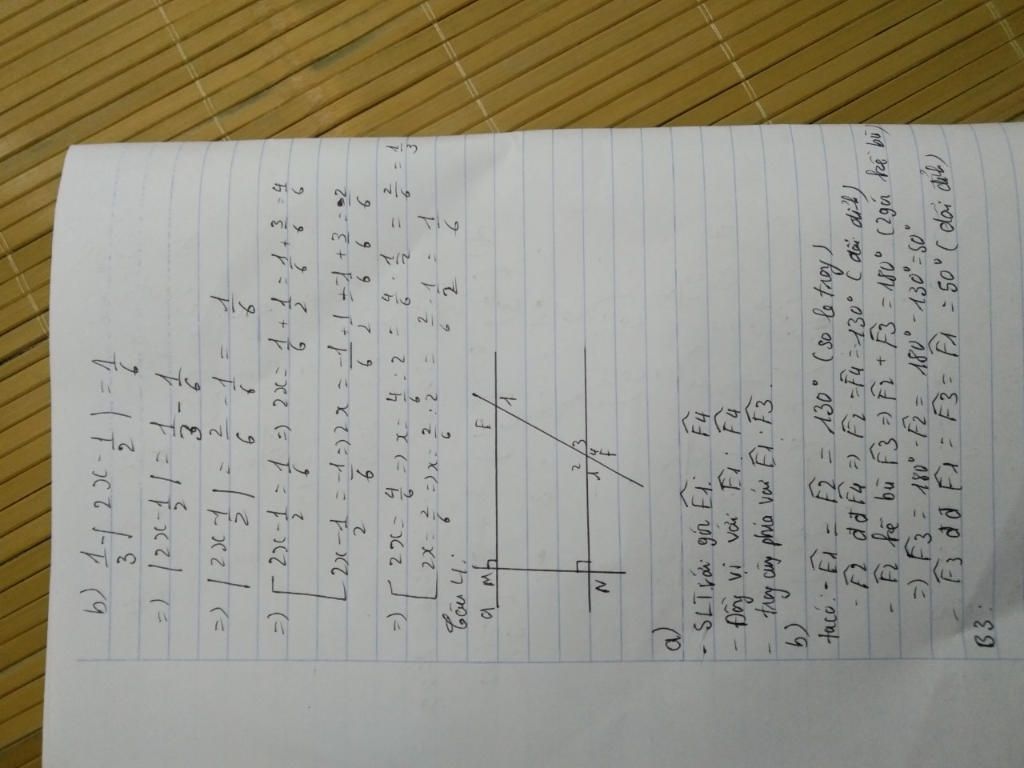 b) 1/3 - | 2x - 1/2 | = 1/6
=) | 2x - 1/2 | = 1/3 - 1/6
=) | 2x - 1/2 | = 2/6 - 1/6 = 1/6
=) [ 2x - 1/2 = 1/6 =) 2x = 1/6 + 1/2 = 1/6 + 3/6 = 4/6
[ 2x - 1/2 = -1/6 =) 2x = -1/6 + 1/2 = -1/6 + 3/6 = 2/6
=) [ 2x = 4/6 =) x = 4/6 : 2 = 4/6 . 1/2 = 2/6 = 1/3
[ 2x = 2/6 =) x = 2/6 : 2 = 2/6 . 1/2 = 1/6
Câu 4:
a M F
1
2 3
1 4
N F
a)
- SLT với góc F̂1: F̂4
- Đồng vị với F̂1: F̂4
- trong cùng phía với F̂1: F̂3.
b)
ta có: - F̂1 = F̂2 = 130° (so le trog)
- F̂2 đđ F̂4 =) F̂2 = F̂4 = 130° (đối đỉh)
- F̂2 kề bù F̂3 =) F̂2 + F̂3 = 180° (2 gó kề bù)
=) F̂3 = 180° - F̂2 = 180° - 130° = 50°
- F̂3 đđ F̂1 = F̂3 = F̂1 = 50° (đối đỉh)
B3: